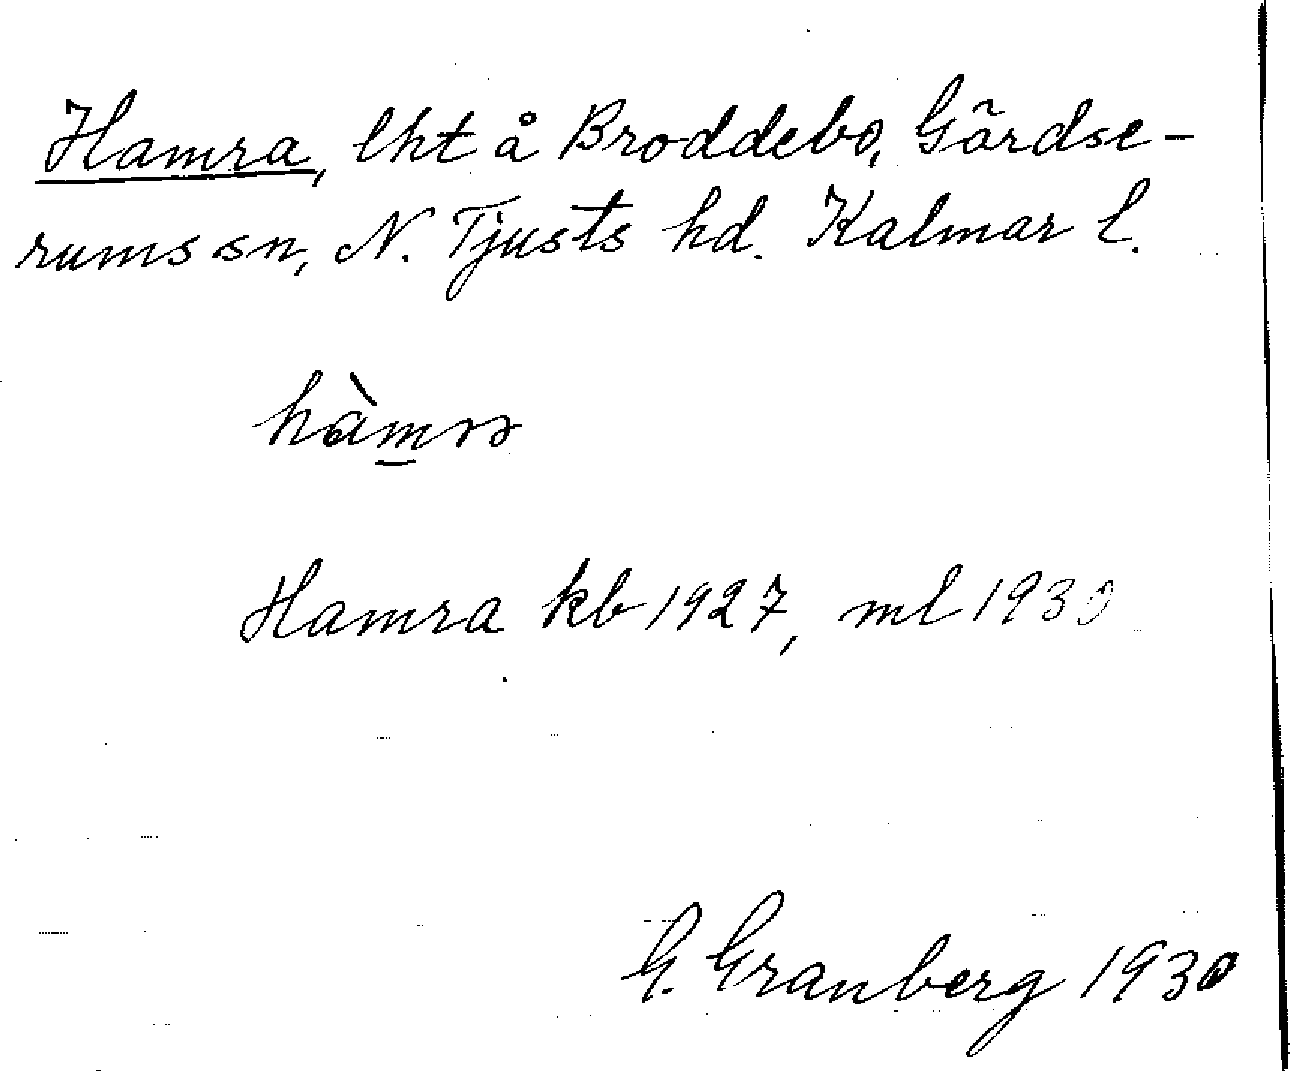 Hamra, lht å Broddebo, Gärdse-
rums sn, N. Tjusts hd. Kalmar l.
Hamra kb 1927, ml 1930
G. Granberg 1930